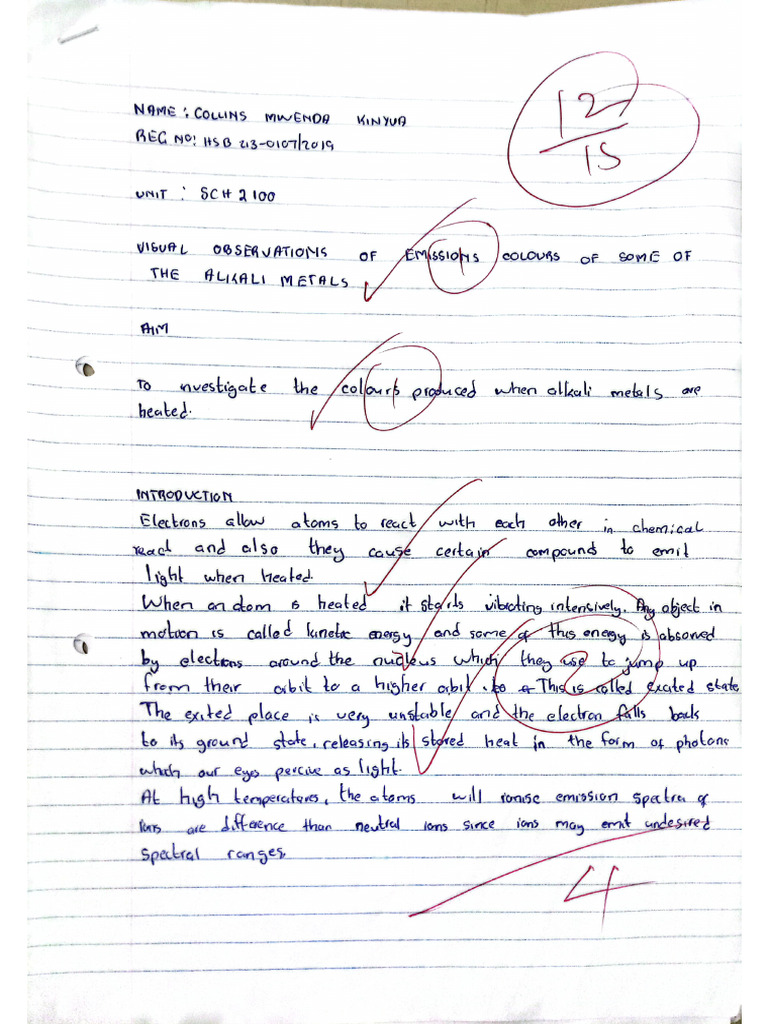 NAME : COLLINS MWENDA KINYUA
12/15
REG NO: HSB 213-0107/2019
UNIT : SCH 2100
VISUAL OBSERVATIONS OF EMISSIONS COLOURS OF SOME OF
THE ALKALI METALS
1
AIM
To investigate the colours produced when alkali metals are
heated.
1
INTRODUCTION
Electrons allow atoms to react with each other in chemical
react and also they cause certain compound to emit
light when heated.
When an atom is heated it starts vibrating intensively. Any object in
motion is called kinetic energy and some of this energy is absorved
by electrons around the nucleus which they use to jump up
from their orbit to a higher orbit. to This is called excated state
2
The exited place is very unstable and the electron falls back
to its ground state, releasing its stored heat in the form of photons
which our eyes percive as light.
At high temperatures, the atoms will ionise emission spectra of
ions are difference than neutral ions since ions may emit undesired
spectral ranges.
4